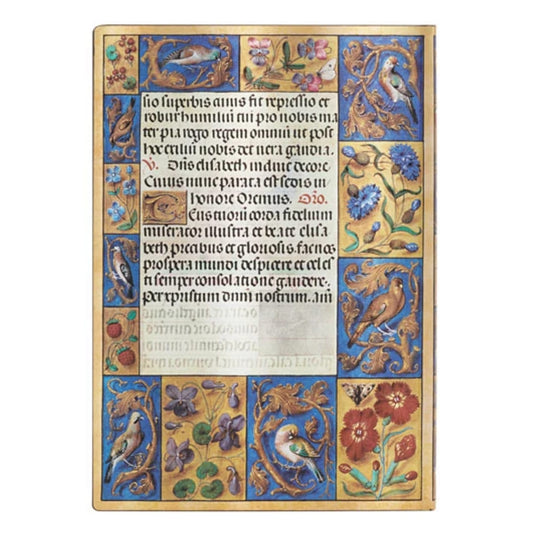 sio superbis cuius fit repressio et
robur humiliū tui pro nobis ma
ter pia rogo regem omniū ut post
hoc exiliū nobis det vera gaudia.
V. Diis elisabeth indiut decore
Cuius nunc parata est sedis in
honore Oremus. Oro.
Eus tuorū corda fidelium
miserator illustra et beate elisa
beth precibus et gloriosis. fac nos
prospera mundi despicere et celes
ti semper consolatione gaudere.
Per xpristum dnm̄ nostrum. am̄